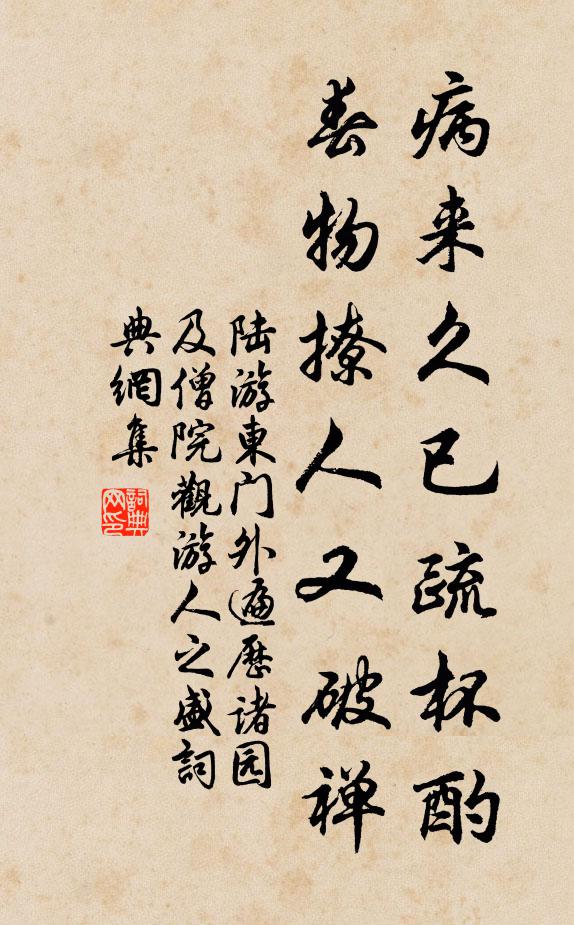 病来久已疏杯酌
春物撩人又破禅
陆游東门外遍歷诸园
及僧院觀游人之盛詞
典網集
詞典
网印